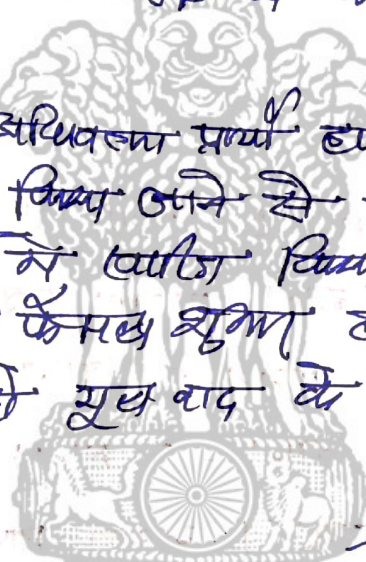 अधिवक्ता प्रार्थी
किया जाने से
में खारिज किया
फैसल शुमार
मूल वाद के